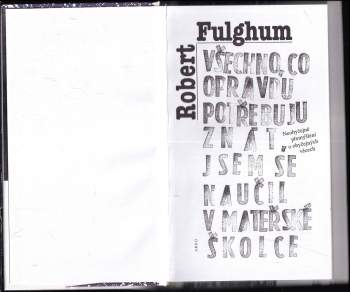 Robert
Fulghum
VŠECHNO, CO
OPRAVDU
POTŘEBUJU
ZNÁT,
JSEM SE
NAUČIL
V MATEŘSKÉ
ŠKOLCE
Neobyčejné
přemýšlení
o obyčejných
věcech
ARGO